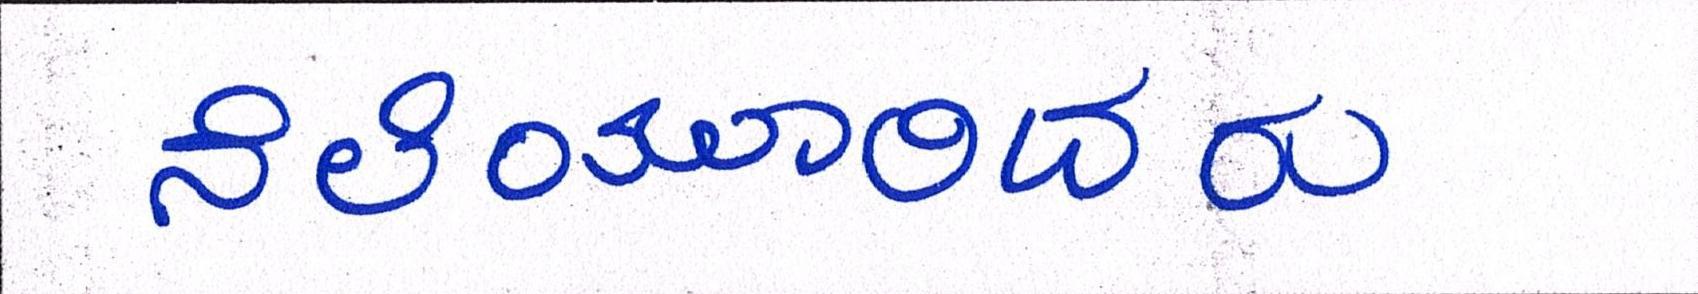 ನೆಲೆಯೂರಿದರು